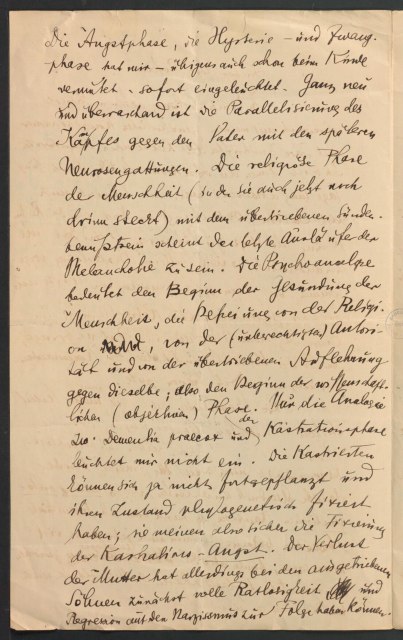 Die Angstphase, die Hysterie - und Zwang-
phase hat mir – übrigens auch schon beim Kinde
vermutet - sofort eingeleuchtet. Ganz neu
und überraschend ist die Parallelisierung des
Kampfes gegen den Vater mit den späteren
Neurosengattungen. Die religiöse Phase
der Menschheit (in der sie auch jetzt noch
drinn steckt) mit dem übertriebenen Sünden-
bewußtsein scheint der letzte Ausläufer der
Melancholie zu sein. Die Psychoanalyse
bedeutet den Beginn der Gesundung der
Menschheit, die Befreiung von der Religi-
on, von der (unberechtigten) Autori-
tät und von der übertriebenen Auflehnung
gegen dieselbe; also den Beginn der wissenschaft-
lichen (objektiven) Phase. Nur die Analogie
zw. Dementia praecox und der Kastrationsphase
leuchtet mir nicht ein. Die Kastrierten
können sich ja nicht fortgepflanzt und
ihren Zustand phylogenetisch fixiert
haben; sie meinen also sicher die Fixierung
der Kastrations-Angst. Der Verlust
der Mutter hat allerdings bei den ausgetriebenen
Söhnen zunächst volle Ratlosigkeit und
Regression auf den Narzismus zur Folge haben können